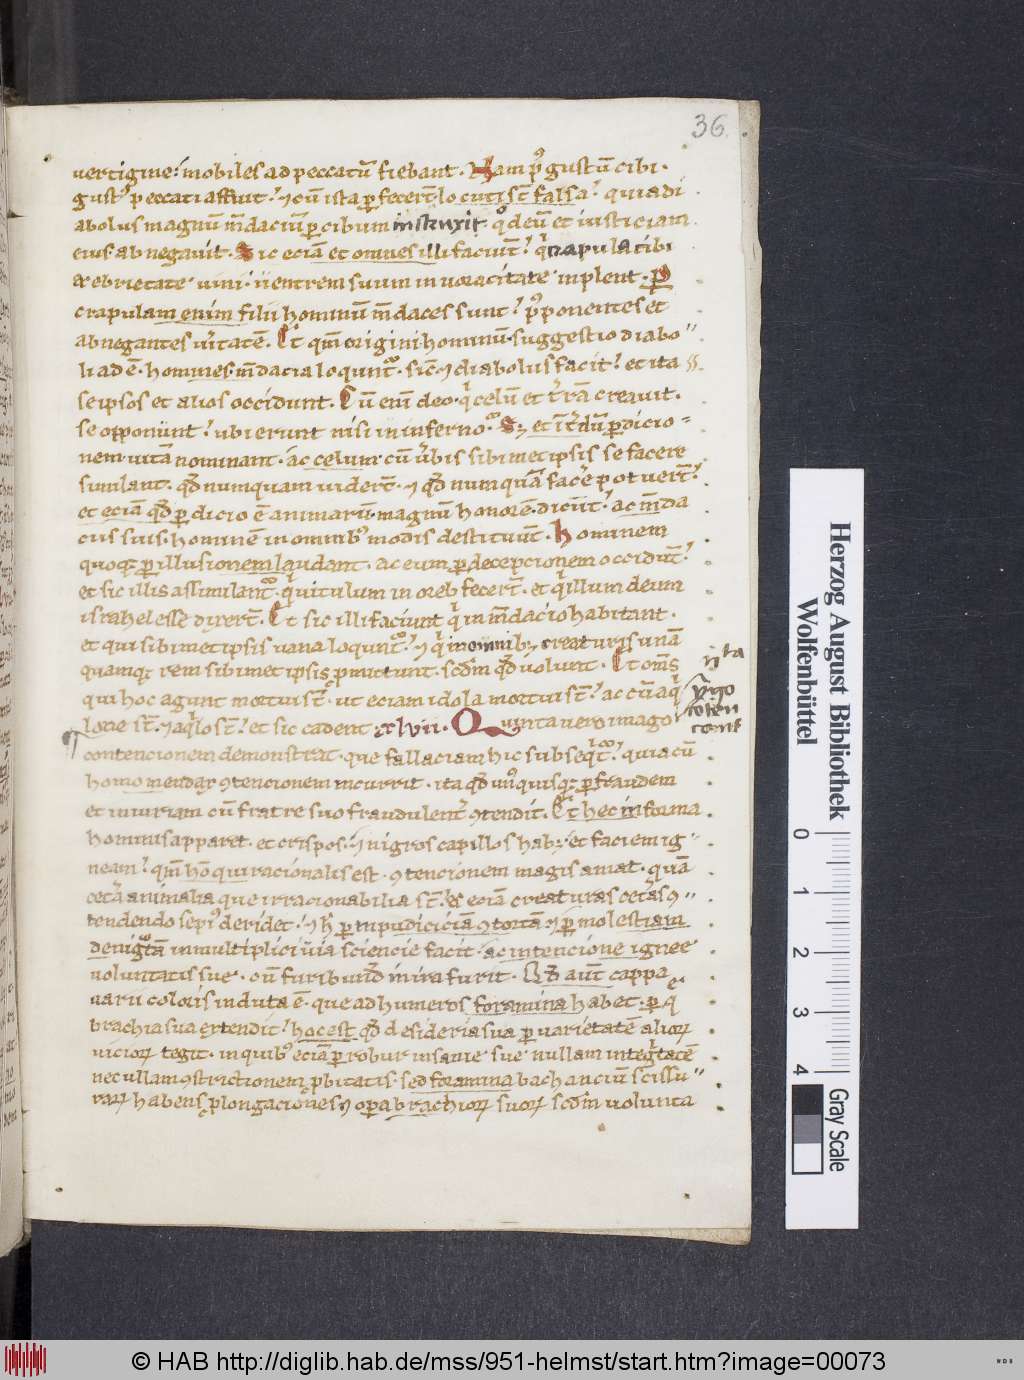 36.
vertigine. mobiles ad peccatū fiebant. Nam p⁹ gustū cibi.
gust⁹ peccati affuit. ⁊ cū ista ꝑfecert̄ locuti st̄ falsa. quia di
abolus magnū m̄daciū ꝑ cibum instruxit. qͦ deū et iusticiam
eius abnegavit. Sic eciā et omnes illi faciūt. qͥ crapula cibi
& ebrietate vini. uentrem suum in voracitate inplent. Per
crapulam enim filii hominū m̄daces sunt. p̄ponentes et
abnegantes v̄itatē. Et qm̄ origini hominū suggestio diabo
li adē. homines m̄dacia loqunt᷑. sic̄ ⁊ diabolus facit. et ita
se ipsos et alios occidunt. Cū eni deo qͥ celū et t̄rā creavit.
se opponunt. ubi erunt nisi in inferno. et int̄dū ꝑdicio
nem vitā nominant. ac celum cū v̄bis sibimet ipsis se facere
similant. qd̄ numquam uidert̄. ⁊ qd̄ numquā facē potuert̄.
et eciā qd̄ ꝑdicio ē animarū magnū honorē dicūt. ac m̄da
ciis suis. hominē in omnib⁹ modis destituūt. hominem
quoq; ꝑ illusionem laudant. ac eum ꝑ decepcionem occidūt.
et sic illis assimilant᷑. qͥ vitulum in oreb fecert̄. et qͥ illum deum
israhel esse dixert̄. Et sic illi faciunt qͥ in m̄dacio habitant.
et qui sibimet ipsis vana loqunt᷑. ⁊ qͥ in omnib; creaturis unā
quamq; rem sibimet ipsis p̄mittunt. scdm̄ qd̄ volunt. Et om̄s
qui hoc agunt mortui st̄. ut eciam idola mortui st̄. ac cū aqͥ
et sic cadent. xlvii. Quinta vero imago
contencionem demonstrat. que fallaciam hic subseqͥt᷑. quia cū
homo mendax ꝯtencionem incurrit. ita qd̄ un⁹quisq; ꝑ fraudem
et iniuriam cū fratre suo fraudulent̄ ꝯtendit. Et hec in forma
hominis apparet. et crispos. ⁊ nigros capillos hab;. et faciem ig
neam. qm̄ hō qui racionalis est. ꝯtencionem magis amat. quā
cet̄a animalia que irracionabilia st̄. eciā creaturas cet̄as ꝯ
tendendo sepi⁹ deridet. ⁊ h̄ ꝑ inpudiciciā ꝯtortā ⁊ ꝑ molestiam
denigͣtā in multiplici via sciencie facit. ac intencione ignee
voluntatis sue. cū furibund⁹ in ira furit. Qd̄ aūt cappa
varii coloris induta ē. que ad humeros foramina habet. ꝑ q̄
brachia sua extendit. hoc est qd̄ desideria sua ꝑ varietatē alioꝝ
vicioꝝ tegit. in quib⁹ eciā ꝑ robur insanie sue nullam integͥtatē
nec ullam ꝯstrictionem ꝓbitatis. sed foramina bachanciū scissu
raꝝ habens. ꝓlongaciones ⁊ oꝑa brachioꝝ suoꝝ scdm̄ volunta
Herzog August Bibliothek
Wolfenbüttel
0 1 2 3 4
Gray Scale
© HAB http://diglib.hab.de/mss/951-helmst/start.htm?image=00073